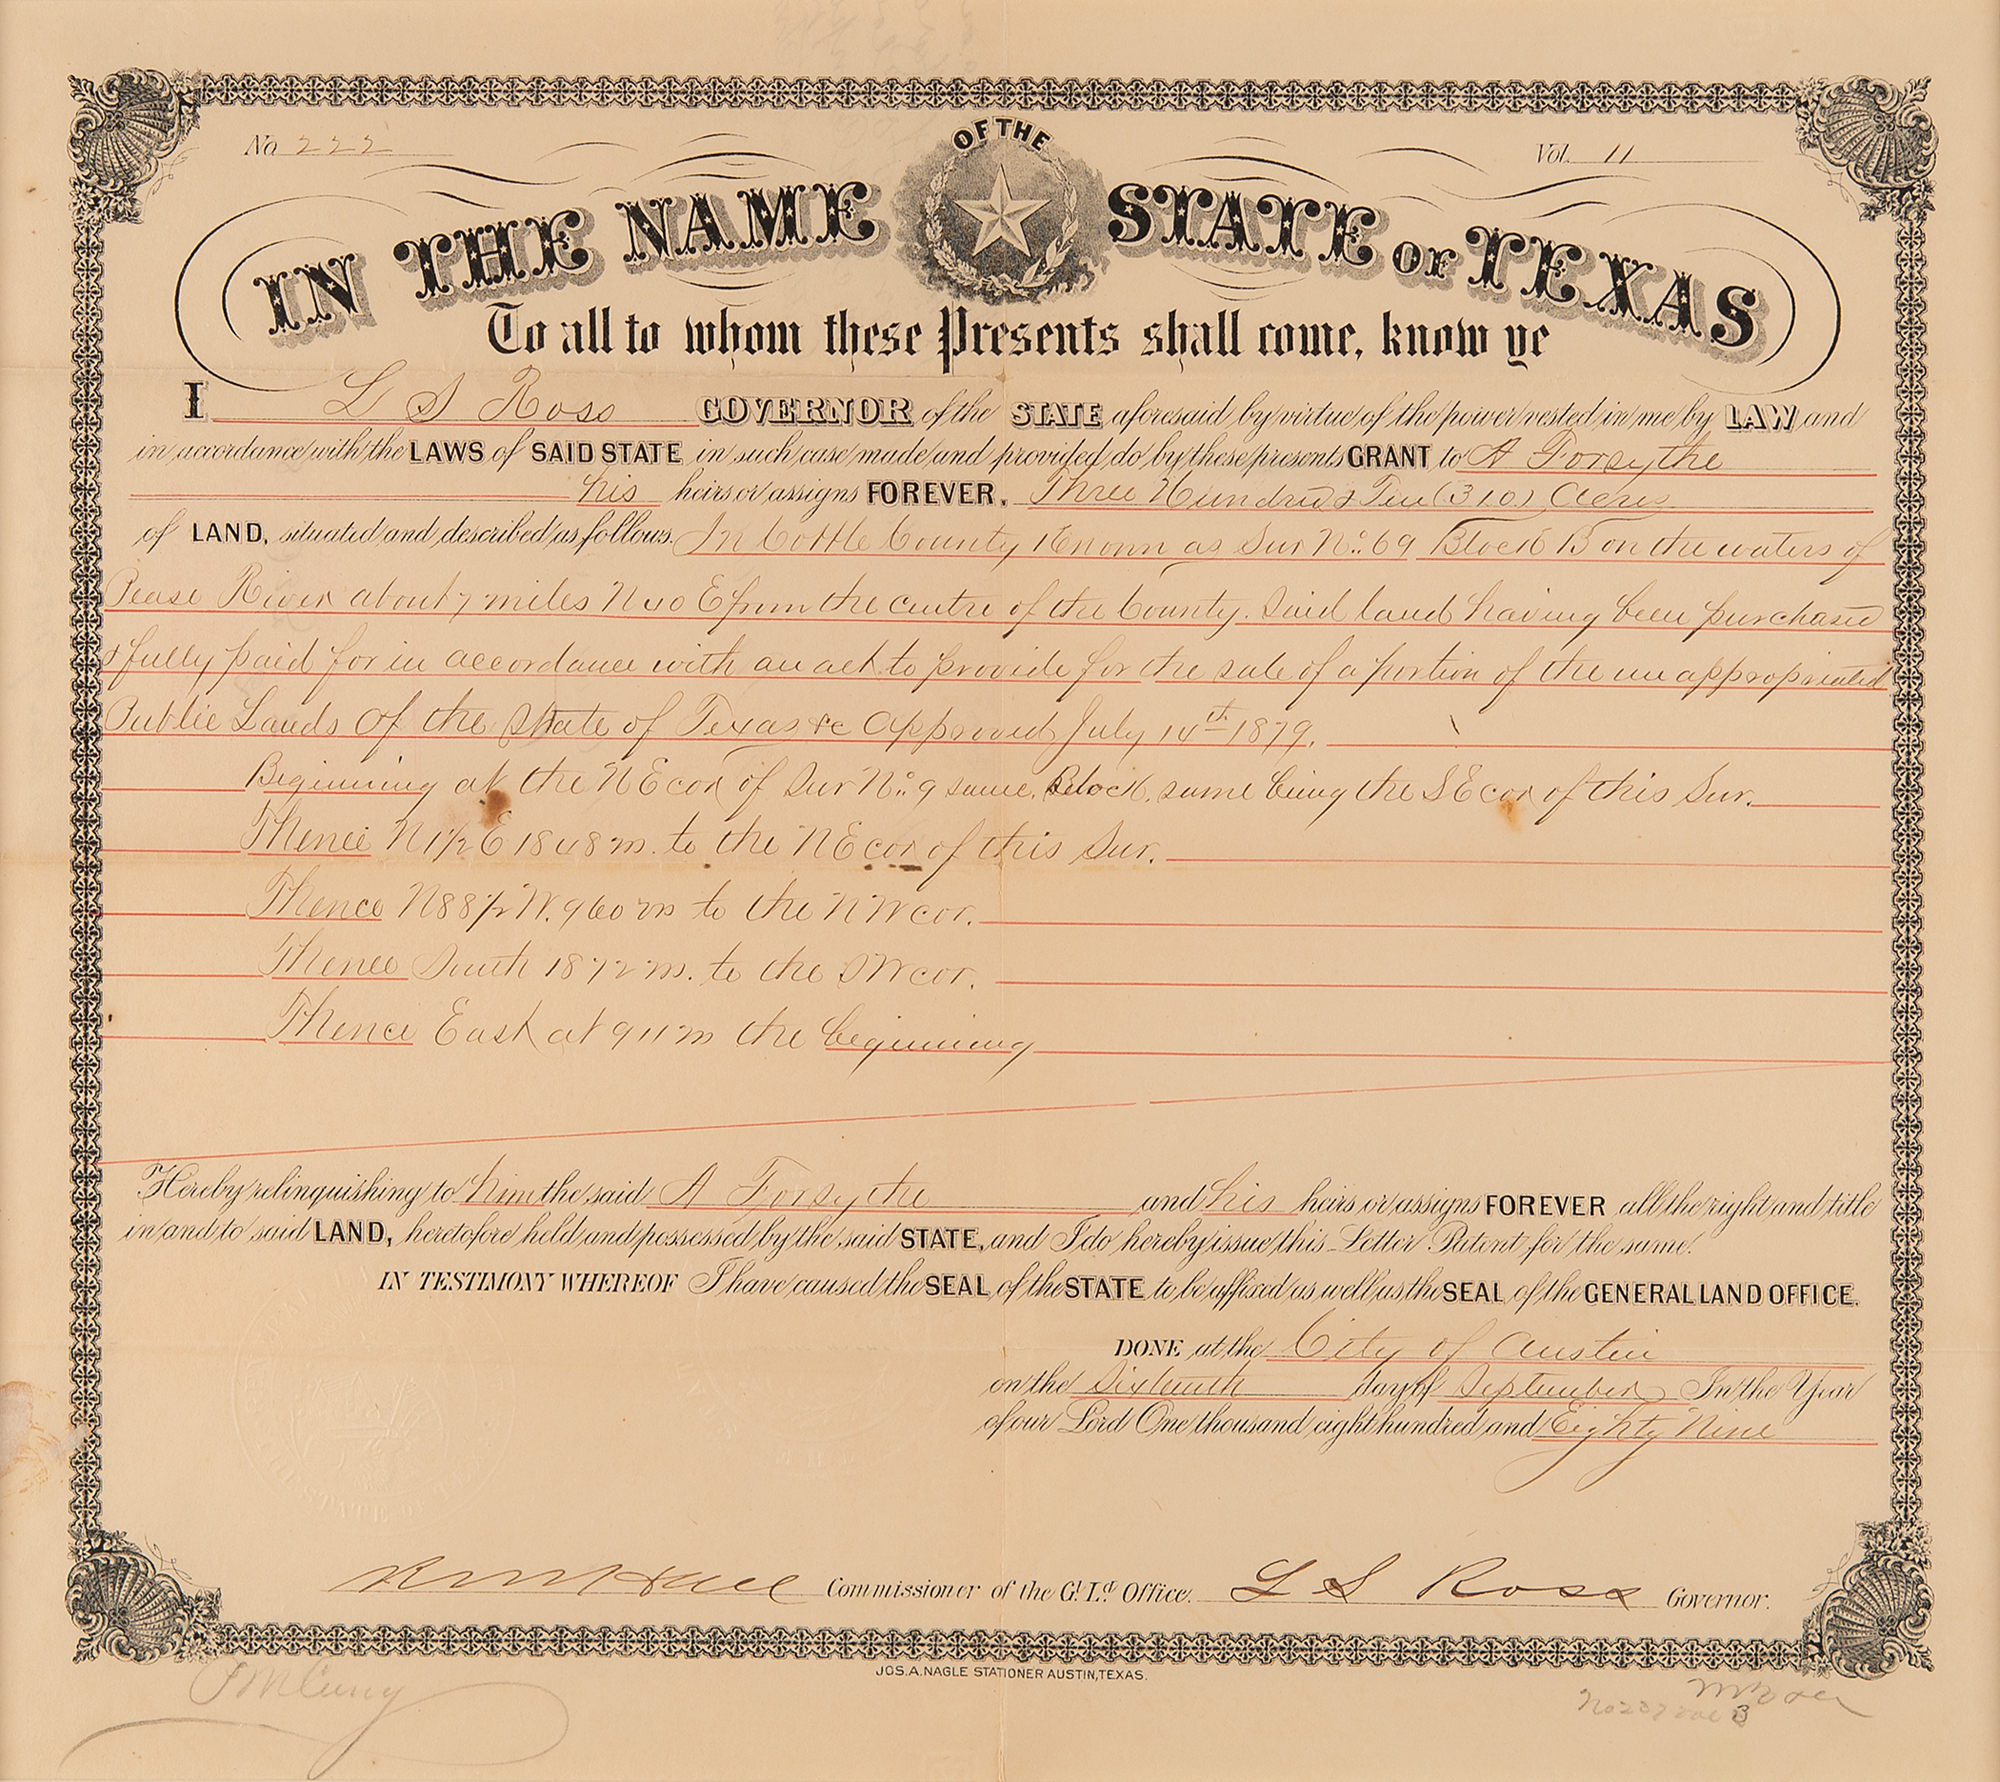 No 222
Vol. 11
IN THE NAME OF THE STATE OF TEXAS
To all to whom these Presents shall come, know ye
I L S Ross GOVERNOR of the STATE aforesaid by virtue of the power vested in me by LAW and
in accordance with the LAWS of SAID STATE in such case made and provided do by these presents GRANT to A Forsythe
his heirs or assigns FOREVER. Three Hundred & Ten (310) Acres
of LAND, situated and described as follows. In Cottle County Known as Sur No. 69 Block B on the waters of
Pease River about 7 miles N 40 E from the centre of the County. Said land having been purchased
& fully paid for in accordance with an act to provide for the sale of a portion of the unappropriated
Public Lands of the State of Texas &c Approved July 14th 1879.
Beginning at the N E cor of Sur No. 9 same Block. same being the S E cor of this Sur.
Thence N 1 1/2 E 1848 m. to the N E cor of this Sur.
Thence N 88 1/2 W. 960 vs to the N W cor.
Thence South 1872 vs. to the S W cor.
Thence East at 911 vs the beginning
Hereby relinquishing to him the said A Forsythe and his heirs or assigns FOREVER all the right and title
in and to said LAND, heretofore held and possessed by the said STATE, and I do hereby issue this Letter Patent for the same.
IN TESTIMONY WHEREOF I have caused the SEAL of the STATE to be affixed as well as the SEAL of the GENERAL LAND OFFICE.
DONE at the City of Austin
on the Sixteenth day of September In the Year
of our Lord One thousand eight hundred and Eighty Nine
R M Hall Commissioner of the Gl. Ld. Office. L S Ross Governor.
JOS. A. NAGLE STATIONER AUSTIN, TEXAS.